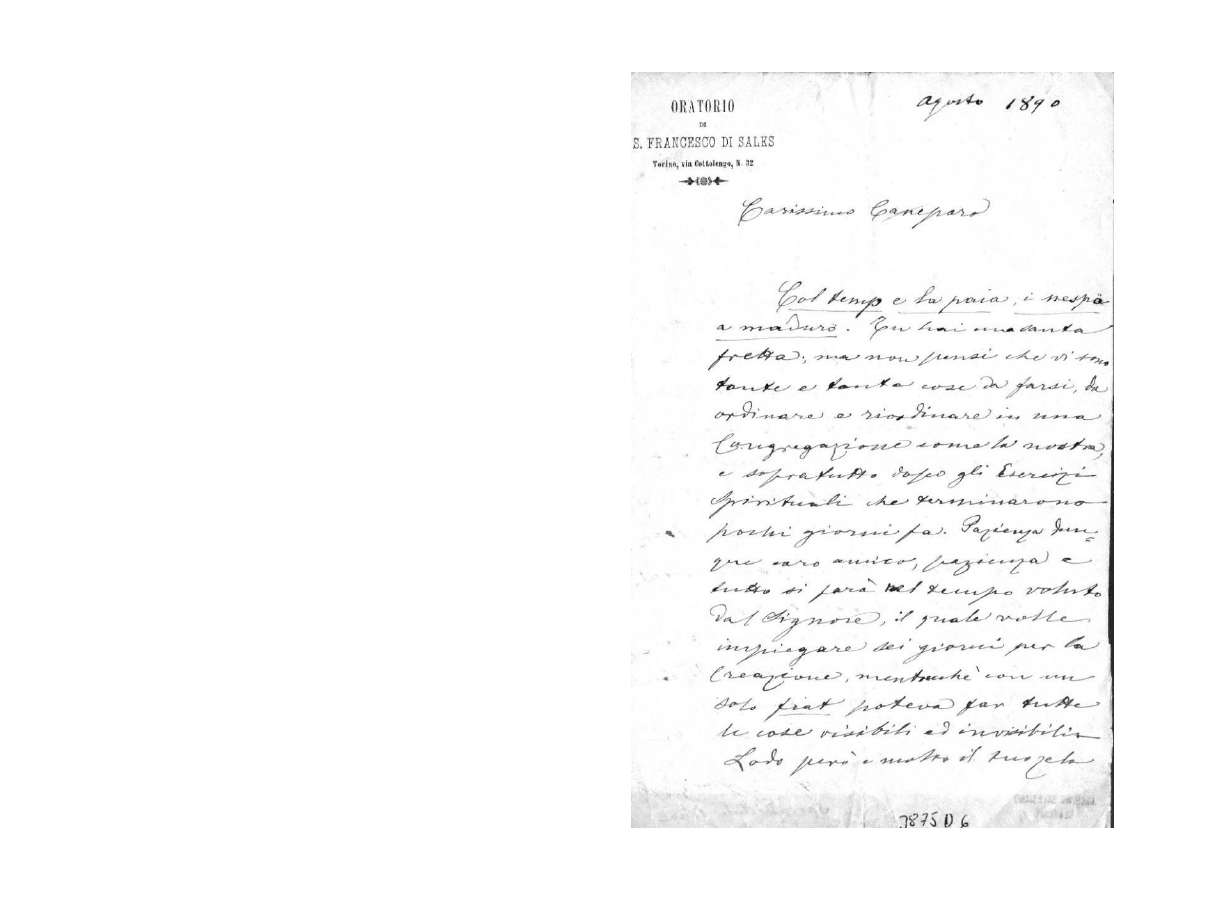 ORATORIO
DI
S. FRANCESCO DI SALES
Torino, via Cottolengo, N. 32
Agosto 1890
Carissimo Caneparo
Col temp e la paia, i nespo
a maduro. Tu hai una santa
fretta; ma non pensi che vi sono
tante e tante cose da farsi, da
ordinare e riordinare in una
Congregazione come la nostra,
e sopratutto dopo gli Esercizi
Spirituali che terminarono
pochi giorni fa. Pazienza dun-
que caro amico, pazienza e
tutto si farà nel tempo voluto
dal Signore, il quale volle
impiegare sei giorni per la
Creazione, mentrechè con un
solo fiat poteva far tutte
le cose visibili ed invisibili
Lodo però e molto il tuo zelo
3875 D 6